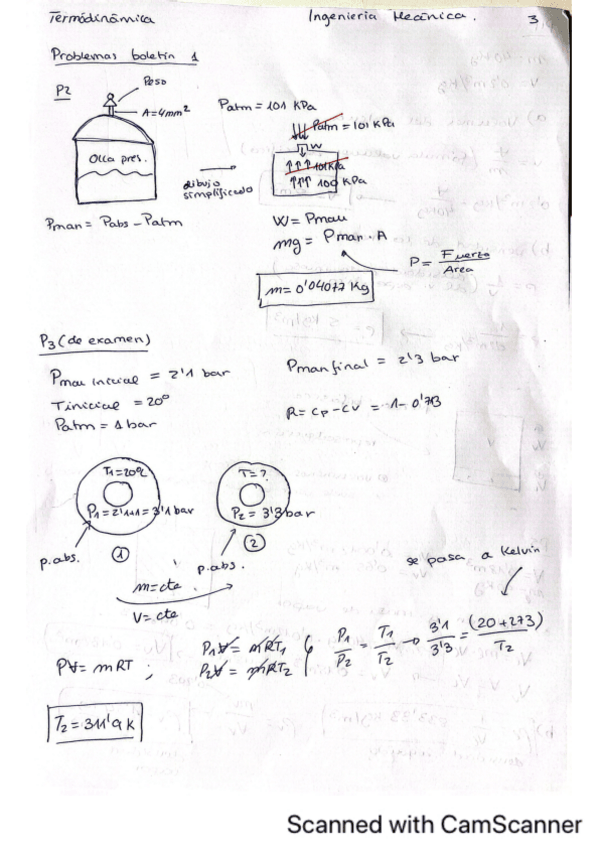 Termodinámica Ingeniería Mecánica. 3
Problemas boletín 1
P2
Peso
A=4mm²
Patm = 101 KPa
Olla pres.
dibujo simplificado
Patm = 101 KPa
W
↑↑↑ 101KPa
↑↑↑ 100 KPa
Pman = Pabs - Patm
W = Pman
mg = Pman · A
P = Fuerza / Area
m = 0'04077 Kg
P3 (de examen)
Pman inicial = 2'1 bar
Pman final = 2'3 bar
Tinicial = 20º
R = Cp - Cv = 1 - 0'713
Patm = 1 bar
T1 = 20ºC
P1 = 2'1+1 = 3'1 bar
T = ?
P2 = 3'3 bar
p.abs. ①
p.abs. ②
se pasa a Kelvin
m = cte
V = cte
PV = mRT ; P1V = mRT1
P2V = mRT2
P1/P2 = T1/T2 → 3'1/3'3 = (20+273)/T2
T2 = 311'9 K
Scanned with CamScanner